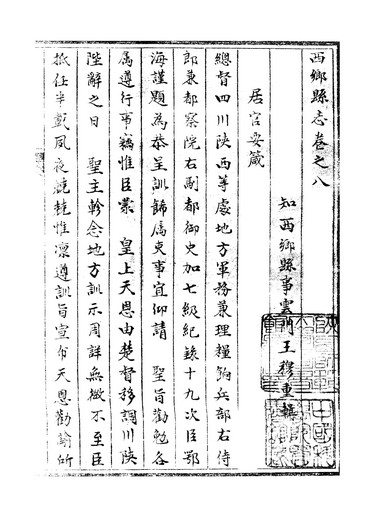 西鄉縣志卷之八
知西鄉縣事雲門王穆重輯
居官要箴
總督四川陝西等處地方軍務兼理糧餉兵部右侍
郎兼都察院右副都御史加七級紀錄十九次臣鄂
海謹題為恭呈訓飭屬吏事宜仰請 聖旨勸勉各
屬遵行事竊惟臣蒙 皇上天恩由楚督移調川陝
陛辭之日 聖主軫念地方訓示周詳無微不至臣
抵任半載夙夜兢兢惟凜遵訓旨宣布天恩勸諭所